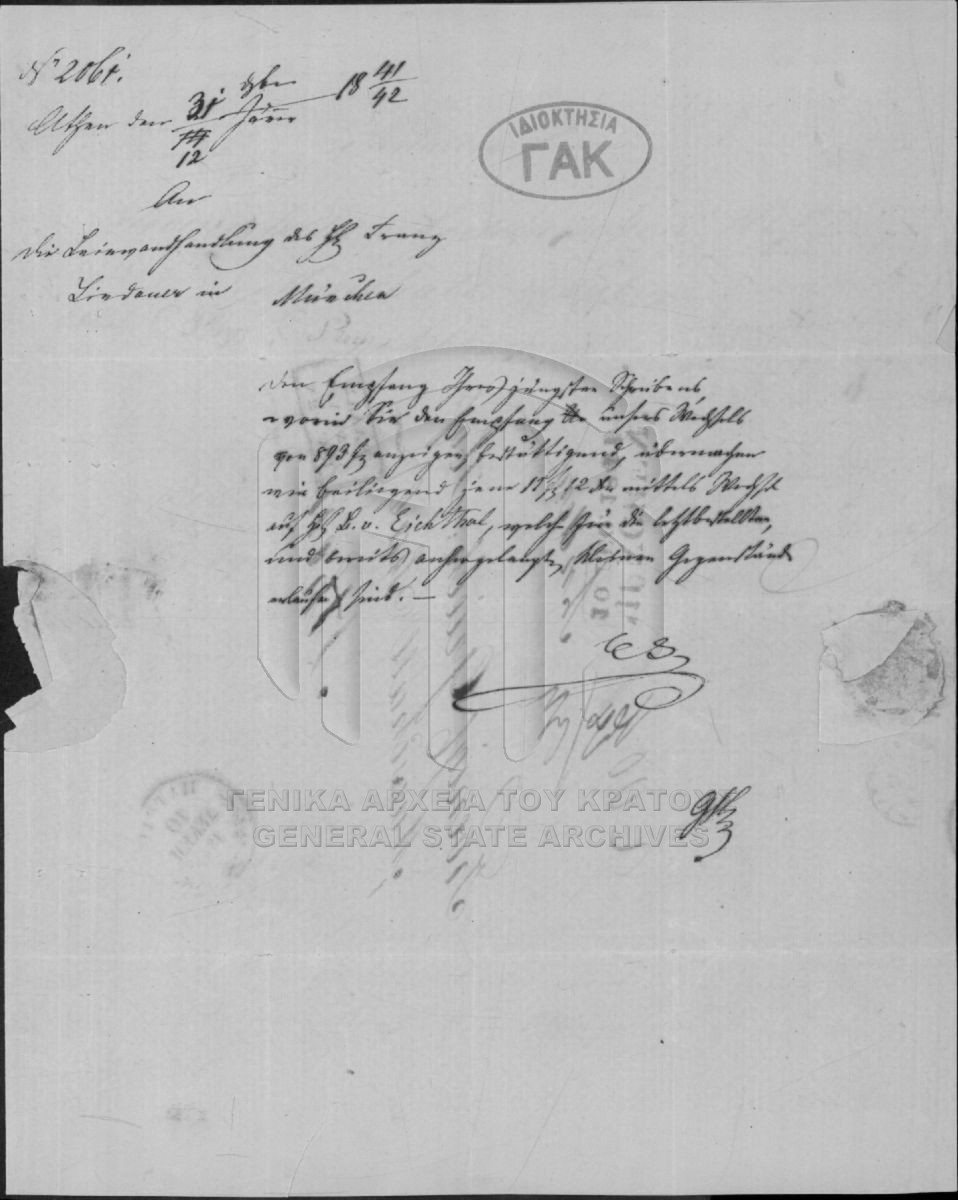 Nr 2061.
Athen den 31/12 Xber / Jäner 18 41/42
ΙΔΙΟΚΤΗΣΙΑ
ΓΑΚ
An
die Leinwandhandlung des H. Franz
Lindauer in München
Den Empfang Ihres jüngsten Schreibens,
worin Sie den Empfang unsers Wechsels
von 893 f anzeigen, bestättigend, übermachen
wir beiliegend jene 11 f 12 Xr mittels Wechsel
auf H. B. v. Eichthal, welche für die letztbestellten,
und bereits anhergelangten kleinen Gegenstände
erlaufen sind. —
ΓΕΝΙΚΑ ΑΡΧΕΙΑ ΤΟΥ ΚΡΑΤΟΥΣ
GENERAL STATE ARCHIVES